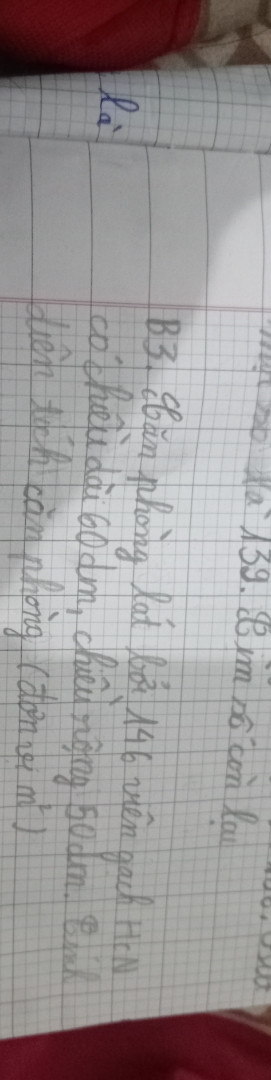 là
là 139. Tìm số còn lại
B3. Căn phòng lát bởi 146 viên gạch HCN
có chiều dài 60dm, chiều rộng 50dm. Tính
diện tích căn phòng (đơn vị m²)